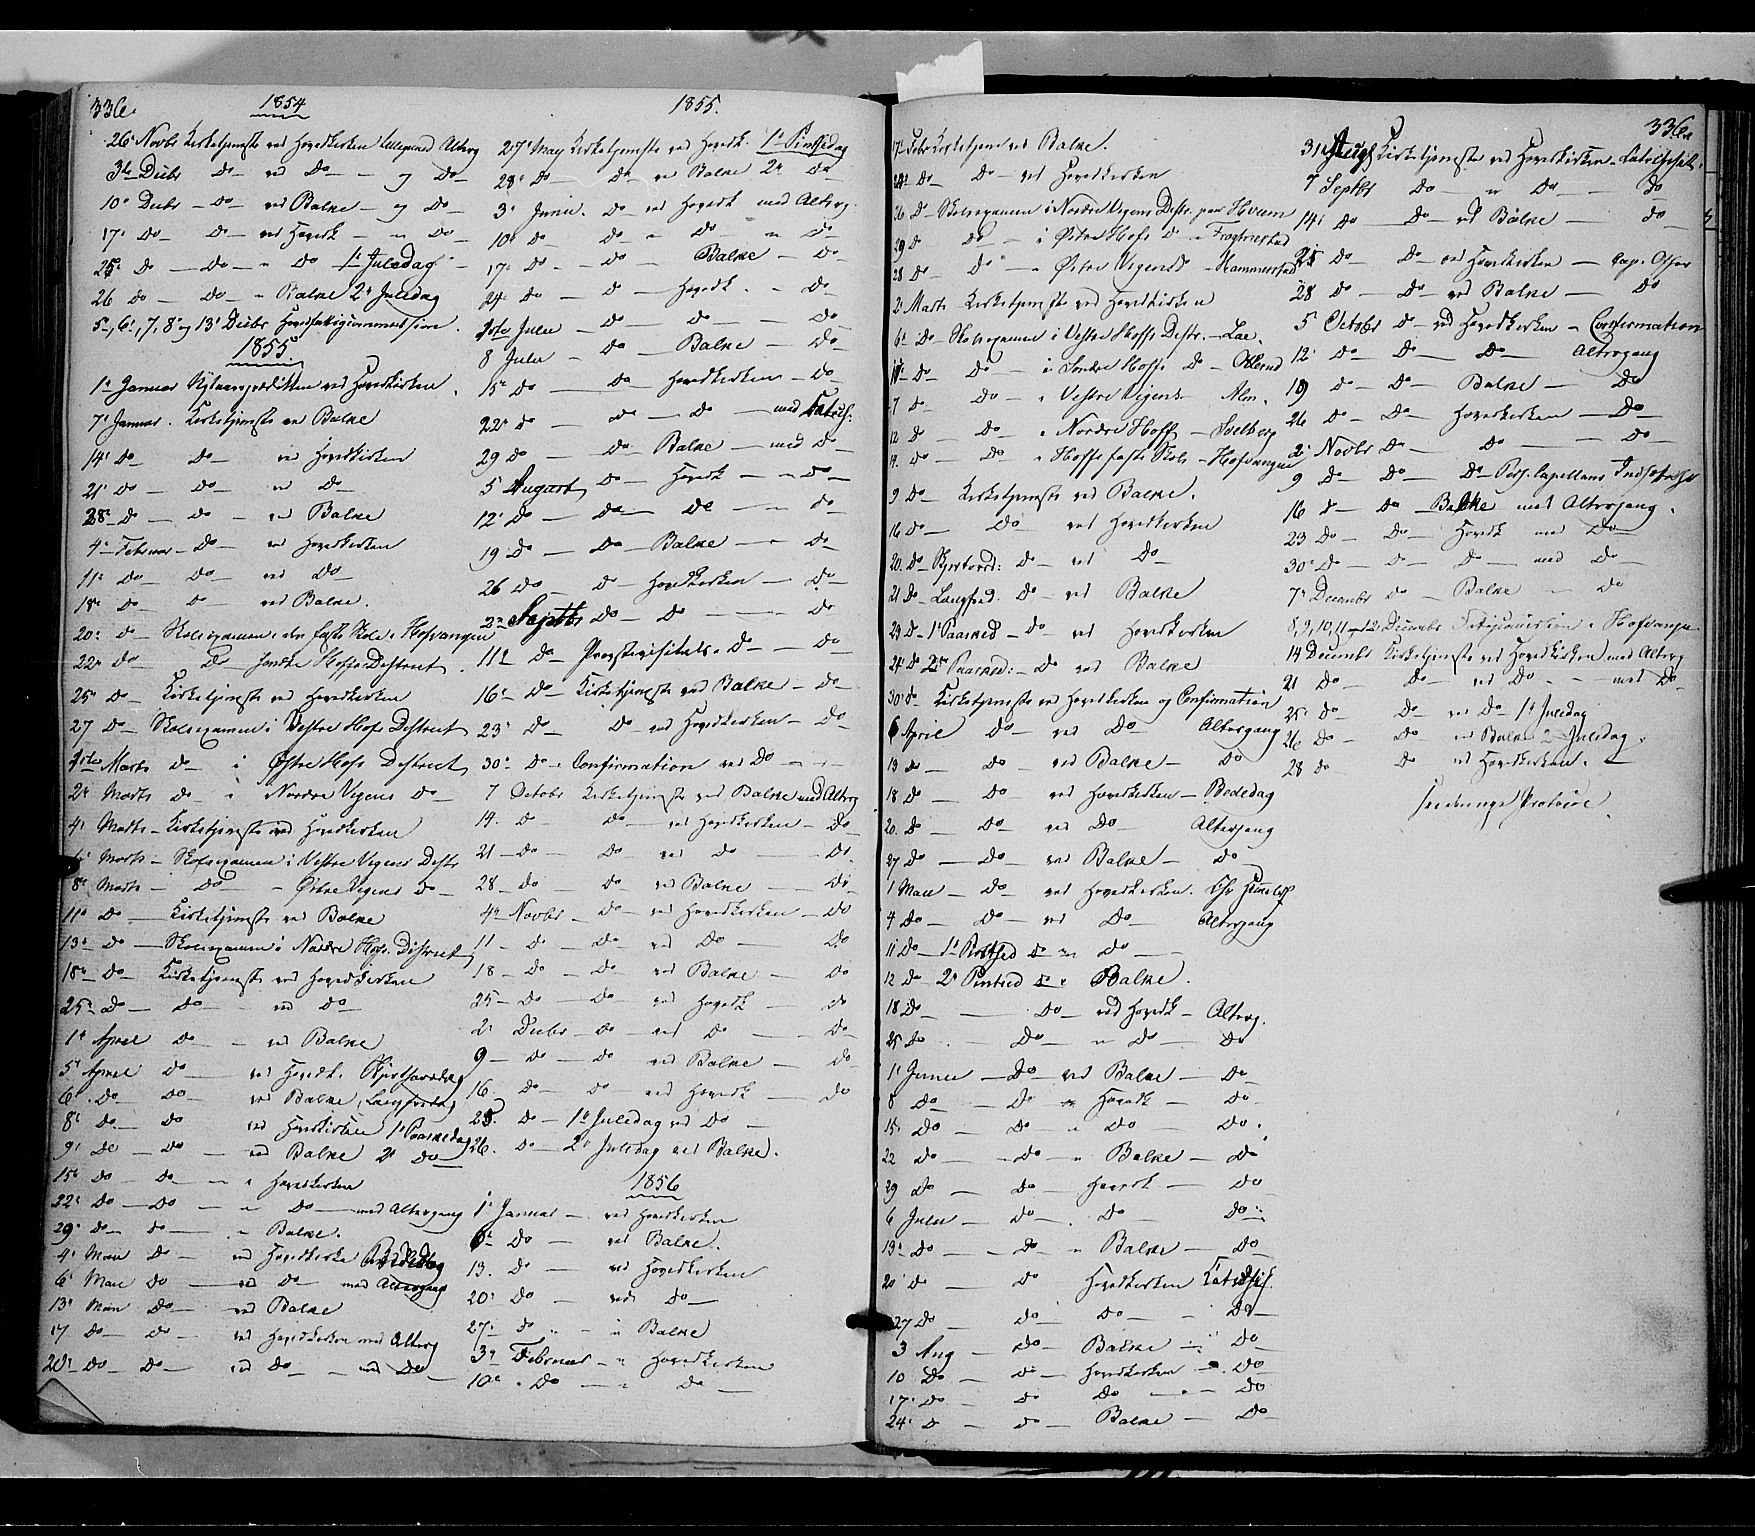 336.
1854
26. Novbr Kirketjeneste ved Hovedkirken Alterg
3de Decbr do ved do og do
10de Decbr do ved Balke og do
17de do do ved Hovedk do
25de do do do 1ste Juledag
26 do do Balke 2den Juledag
5, 6, 7, 8 og 13de Decbr Hovedfattigcommission.
1855.
1ste Januar Nytaarsprædiken ved Hovedkirken.
7de Januar. Kirketjeneste ved Balke
14de do do ved Hovedkirken
21de do do ved do
28de do do ved Balke
4de Februar do ved Hovedkirken
11te do do ved do
18de do do ved Balke.
20de do Skoleexamen i den faste Skole i Hofvangen
22de do do Søndre Hoffs District.
25de do Kirketjeneste ved Hovedkirken
27 do Skoleexamen i Vestre Hofs District
1ste Marts do i Østre Hofs District
2den Marts do i Nordre Vigens do
4de Marts Kirketjeneste ved Hovedkirken
Marts Skoleexamen i Vestre Vigens Distr
8de Marts do Østre Vigens do
11te do Kirketjeneste ved Balke
13de do Skoleexamen i Nordre Hofs District
18de do Kirketjeneste ved Hovedkirken
25de do do ved do
1ste April do ved Balke
5te April do ved Hovedk. Skjærthorsdag
6te do do ved Balke Langfredag
8de do do ved Hovedkirken 1ste Paaskedag
9de do do ved Balke 2den do
15de do do Hovedkirken
22de do do do med Altergang
29de do do Balke.
4de Mai do ved Hovedkirke Bededag
6te Mai do ved do med Altergang
13de Mai do ved Balke
17 do do ved Hovedkirken med Alterg
20de do do ved do med do
1855.
27de May Kirketjeneste ved Hovedk. 1ste Pintsedag
28de do do ved Balke 2den do
3de Junii. do ved Hovedk med Alterg.
10de do do do do
17de do do Balke do
24de do do Hovedk. do
1ste Julii do do do
8 Julii do Balke do
15de do do Hovedkirken do
22de do do do med Catech:
29 do do Balke med do
5 August do Hovedk do
12te do do do do
19 do do Balke do
26 do do Hovedkirken do
2den Septbr do do do
11te do Provstevisitats do do
16de do Kirketjeneste ved Balke do
23de do do ved Hovedkirken do
30de do Confirmation ved do
7 Octobr Kirketjeneste ved Balke med Alterg
14. do do ved Hovedkirken do
21 do do ved do do
28 do do ved Balke do
4de Novbr do ved Hovedkirken do
11 do do ved do do
18 do do ved Balke do
25 do do ved Hovedk do
2den Decbr do ved do do
9 do do ved Balke do
16 do do ved Hovedk do
25. do 1ste Juledag ved do
26. do 2den Juledag ved Balke.
1856
1ste Januar ved Hovedkirken
6te do ved Balke.
13. do ved Hovedkirken
20de do ved do
27de do Balke
3die Februar Hovedkirken
10de do do
336a
17 Febr Kirketjen ved Balke.
24de do do ved Hovedkirken
26 do Skoleexamen i Nordre Vigens Distr. paa Hveem
29 do do i Østre Hofs do
28 do do Østre Vigens Hammerstad
2 Marts Kirketjeneste ved Hovedkirken
6te do Skoleexamen i Vestre Hoffs Distr.
do do i Søndre Hoffs do
7 do do Vestre Vigens Alm.
12 do do Nordre Hoff Sælberg
4. do do Hoffs faste Skole Hofvangen
9 do Kirketjeneste ved Balke.
16 do do ved Hovedkirken
20. do Skjærtorsd: do ved do
21 do Langfred. do ved Balke
23 do 1ste Paasked do ved Hovedkirken
24de do 2den Paasked: do ved Balke
30de do Kirketjeneste ved Hovedkirken og Confirmation
6 April do ved do Altergang
13 do do ved Balke do
18 do do ved Hovedkirken Bededag
20. do do ved do Altergang
27 do do ved Balke do
1 Mai do ved Hovedkirken.
4 do do ved do Altergang
11 do 1ste Pintsed do do
12 do 2den Pintsed do Balke.
18 do do ved Hovedk Alterg.
25 do do do do
1ste Junii do ved Balke do
8 do do Hovedk do
15de do do do do
22 do do Balke do
29 do do Hovedk do
6 Julii do do do
13de do do Balke do
20 do do Hovedkirken Catechis.
27 do do do do
3 Aug do Balke do
10 do do Hovedkirken do
17de do do do do
24de do do Balke do
31te August Kirketjeneste ved Hovedkirken
7 Septbr do do do
14de do do ved Balke do
21 do do ved Hovedkirken
28 do do ved Balke do
5 Octobr do ved Hovedkirken Confirmation
12te do do do Altergang
19 do do Balke do
26 do do Hovedkirken do
2de Novbr do do do
9 do do do Pers. Capellans Indsættelse
16 do do Balke med Altergang.
23 do do Hovedk med do
30de do do do med do
7de Decembr do Balke do
8, 9, 10, 11 og 12 Decembr i Hofvangen
14 Decembr Kirketjeneste ved Hovedkirken med Alterg
21 do do ved do med do
25de do do ved do 1ste Juledag
26 do do ved Balke 2 Juledag.
28 do do ved Hovedkirken.
Protocol